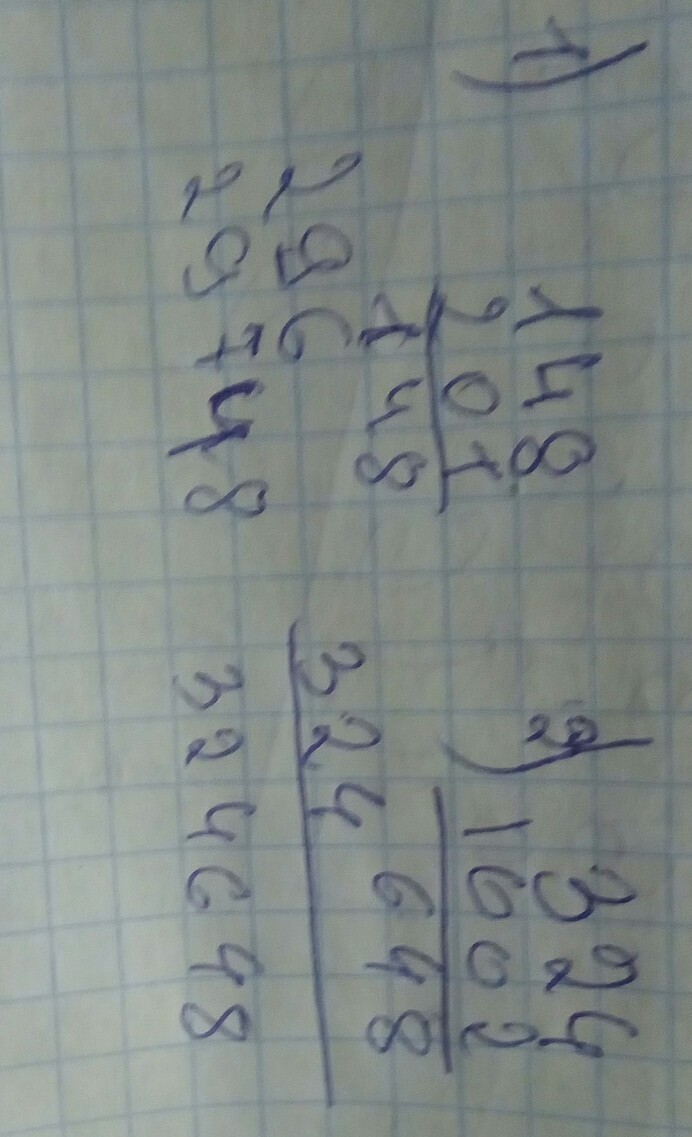 1)
148
201
148
296
29748
2)
324
1002
648
324
324648